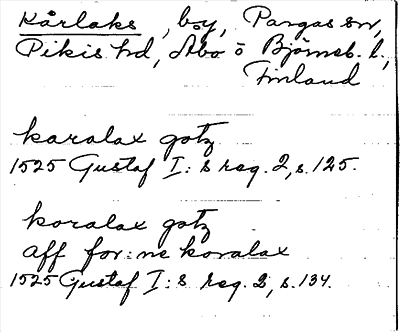 Kårlaks, by, Pargas sn,
Pikis hd, Åbo o Björneb. l.,
Finland
karalax gotz
1525 Gustaf I:s reg. 2, s. 125.
koralax gotz
aff for:ne koralax
1525 Gustaf I:s reg. 2, s. 134.